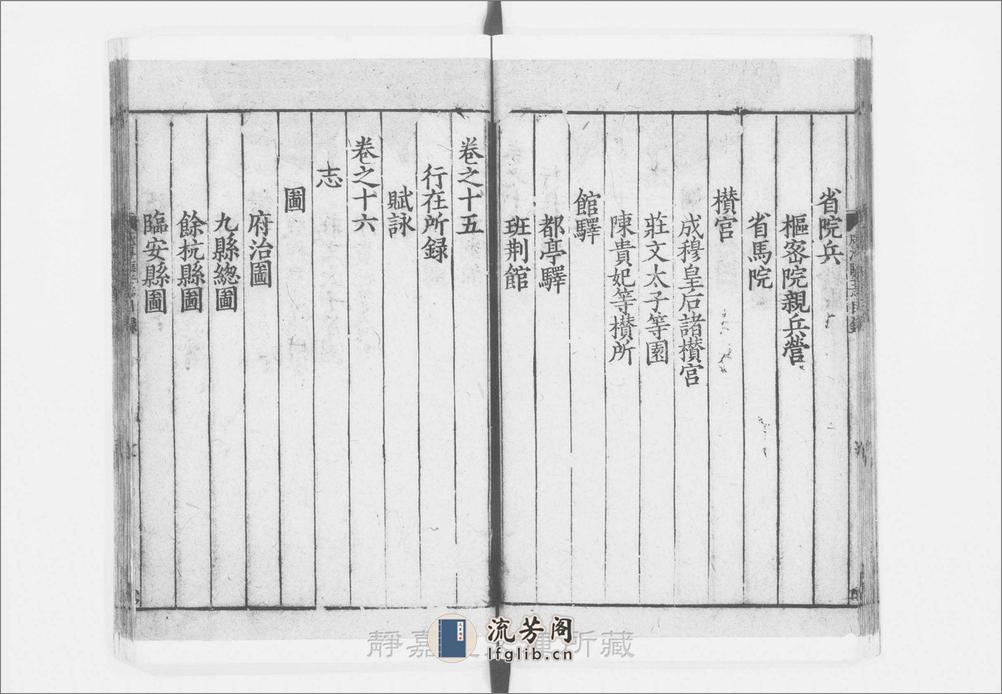 省院兵
樞密院親兵營
省馬院
欑宮
成穆皇后諸欑宮
莊文太子等園
陳貴妃等欑所
館驛
都亭驛
班荆館
卷之十五
行在所録
賦詠
卷之十六
志
圖
府治圖
九縣總圖
餘杭縣圖
臨安縣圖
靜嘉 所藏
流芳阁
lfglib.cn